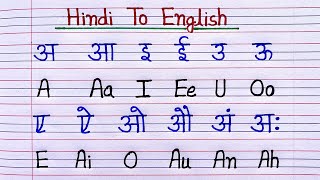 Hindi To English
अ आ इ ई उ ऊ
A Aa I Ee U Oo
ए ऐ ओ औ अं अः
E Ai O Au An Ah